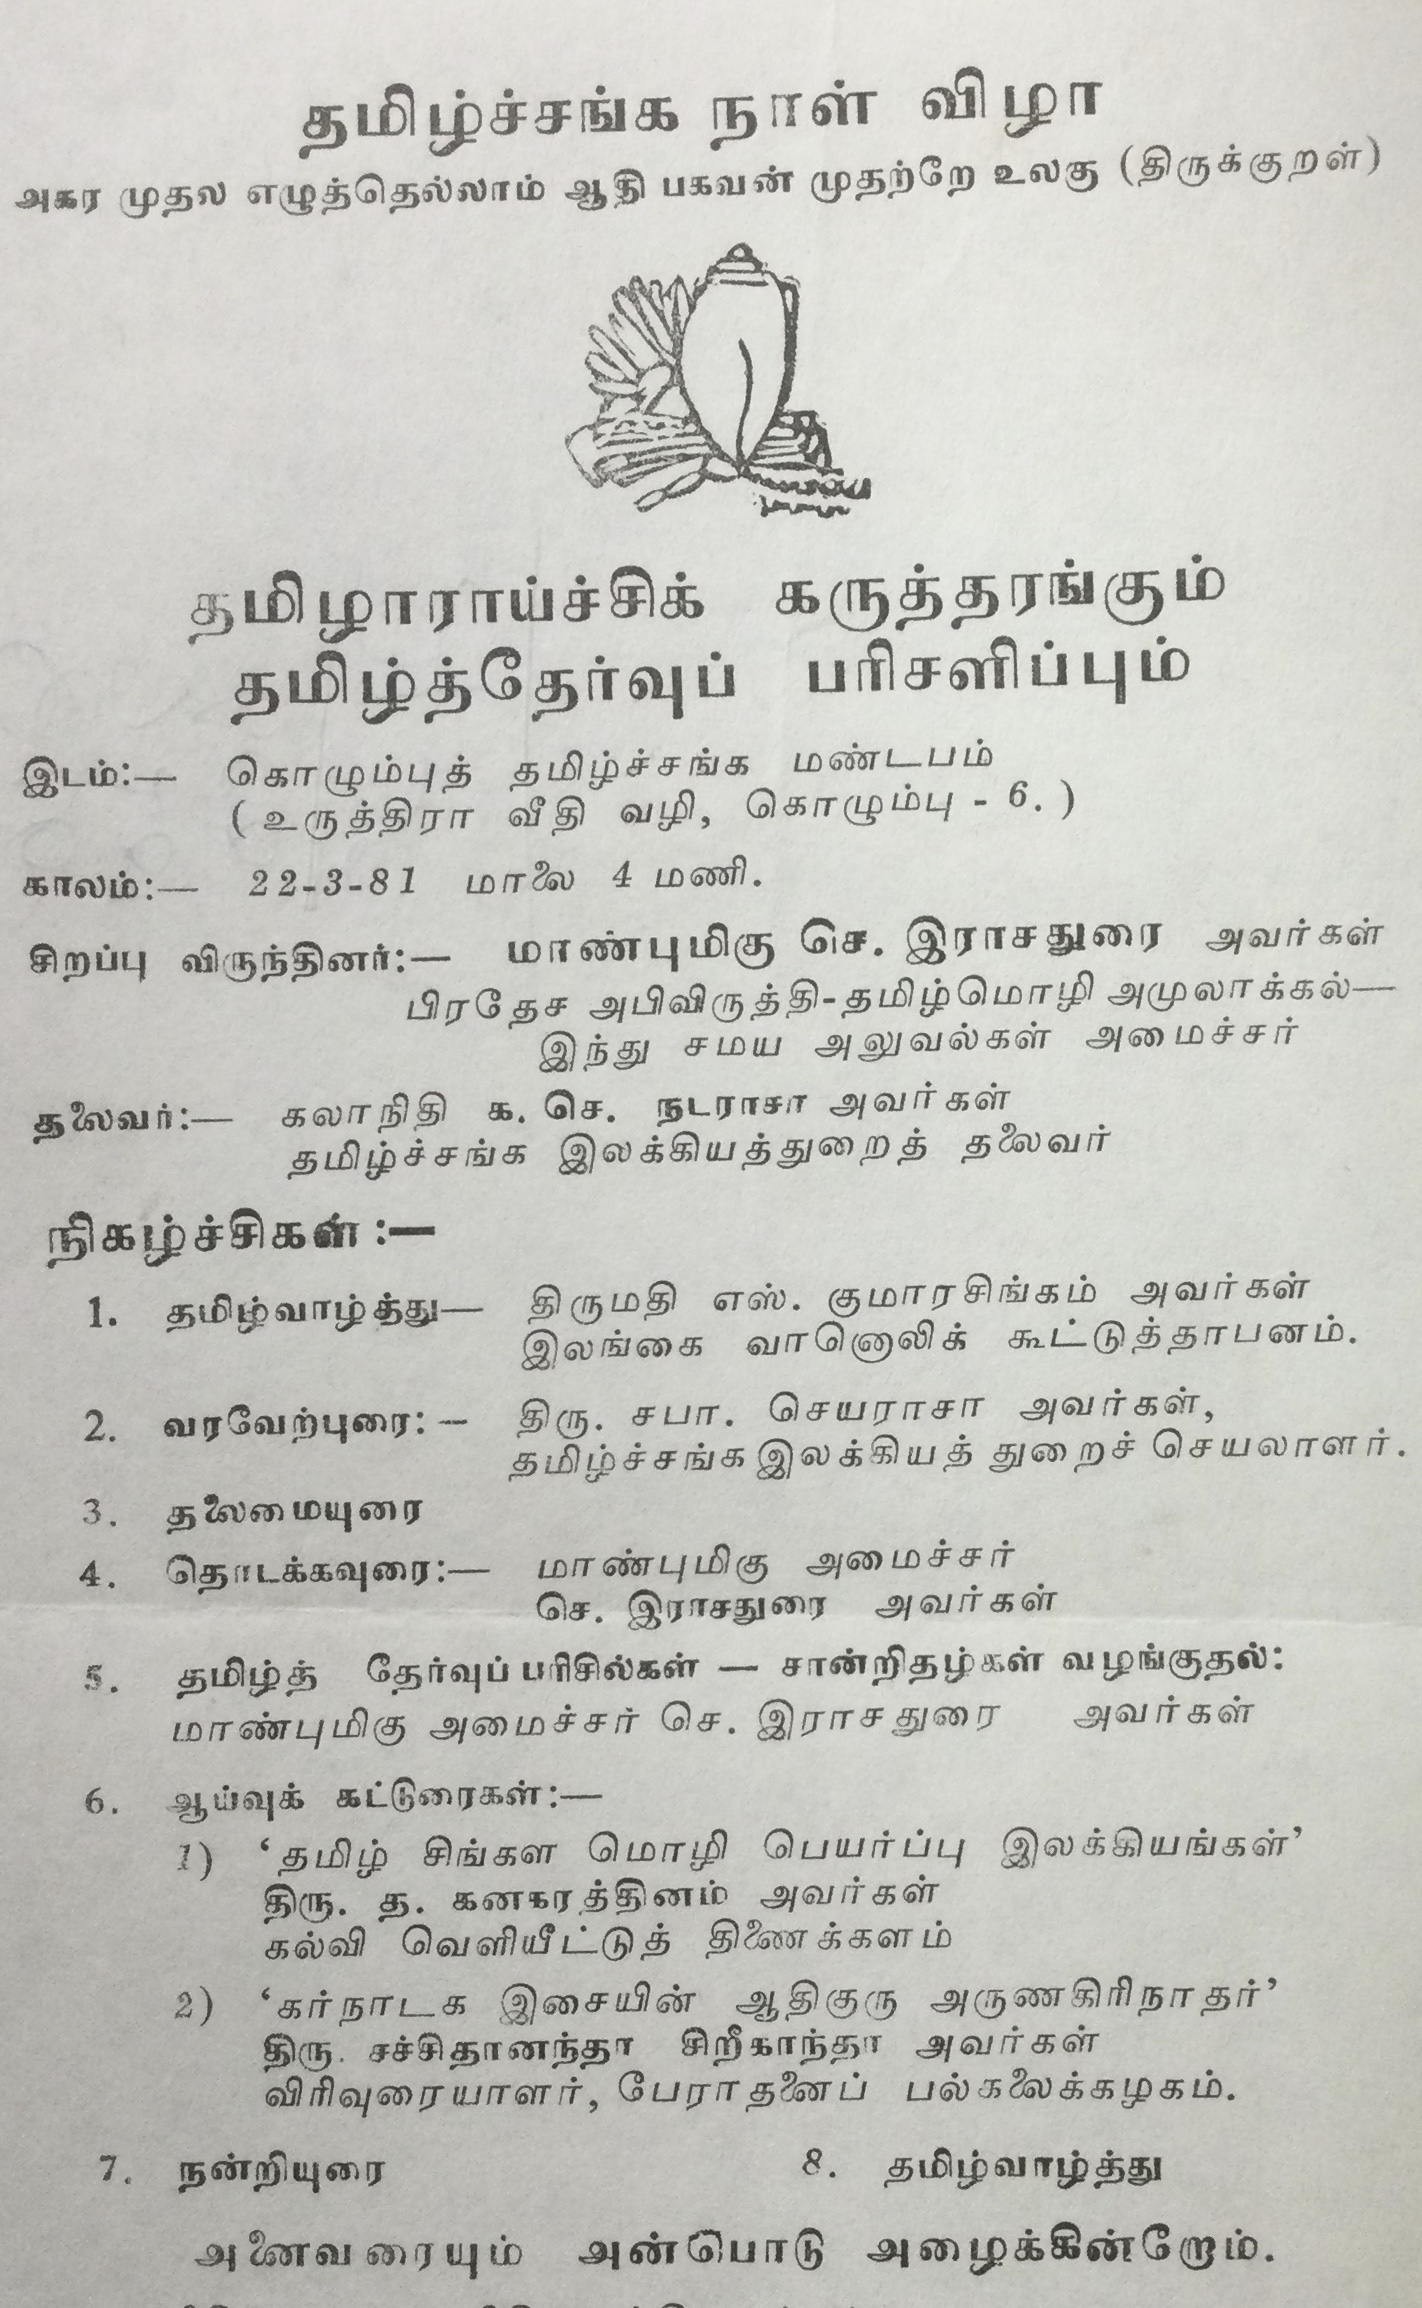 தமிழ்ச்சங்க நாள் விழா
அகர முதல எழுத்தெல்லாம் ஆதி பகவன் முதற்றே உலகு (திருக்குறள்)
தமிழாராய்ச்சிக் கருத்தரங்கும்
தமிழ்த்தேர்வுப் பரிசளிப்பும்
இடம்:— கொழும்புத் தமிழ்ச்சங்க மண்டபம்
(உருத்திரா வீதி வழி, கொழும்பு - 6.)
காலம்:— 22-3-81 மாலை 4 மணி.
சிறப்பு விருந்தினர்:— மாண்புமிகு செ. இராசதுரை அவர்கள்
பிரதேச அபிவிருத்தி-தமிழ்மொழி அமுலாக்கல்—
இந்து சமய அலுவல்கள் அமைச்சர்
தலைவர்:— கலாநிதி க. செ. நடராசா அவர்கள்
தமிழ்ச்சங்க இலக்கியத்துறைத் தலைவர்
நிகழ்ச்சிகள்:—
1. தமிழ்வாழ்த்து— திருமதி எஸ். குமாரசிங்கம் அவர்கள்
இலங்கை வானொலிக் கூட்டுத்தாபனம்.
2. வரவேற்புரை:— திரு. சபா. செயராசா அவர்கள்,
தமிழ்ச்சங்க இலக்கியத் துறைச் செயலாளர்.
3. தலைமையுரை
4. தொடக்கவுரை:— மாண்புமிகு அமைச்சர்
செ. இராசதுரை அவர்கள்
5. தமிழ்த் தேர்வுப் பரிசில்கள் — சான்றிதழ்கள் வழங்குதல்:
மாண்புமிகு அமைச்சர் செ. இராசதுரை அவர்கள்
6. ஆய்வுக் கட்டுரைகள்:—
1) ‘தமிழ் சிங்கள மொழி பெயர்ப்பு இலக்கியங்கள்’
திரு. த. கனகரத்தினம் அவர்கள்
கல்வி வெளியீட்டுத் திணைக்களம்
2) ‘கர்நாடக இசையின் ஆதிகுரு அருணகிரிநாதர்’
திரு. சச்சிதானந்தா சிறீகாந்தா அவர்கள்
விரிவுரையாளர், பேராதனைப் பல்கலைக்கழகம்.
7. நன்றியுரை 8. தமிழ்வாழ்த்து
அனைவரையும் அன்பொடு அழைக்கின்றோம்.